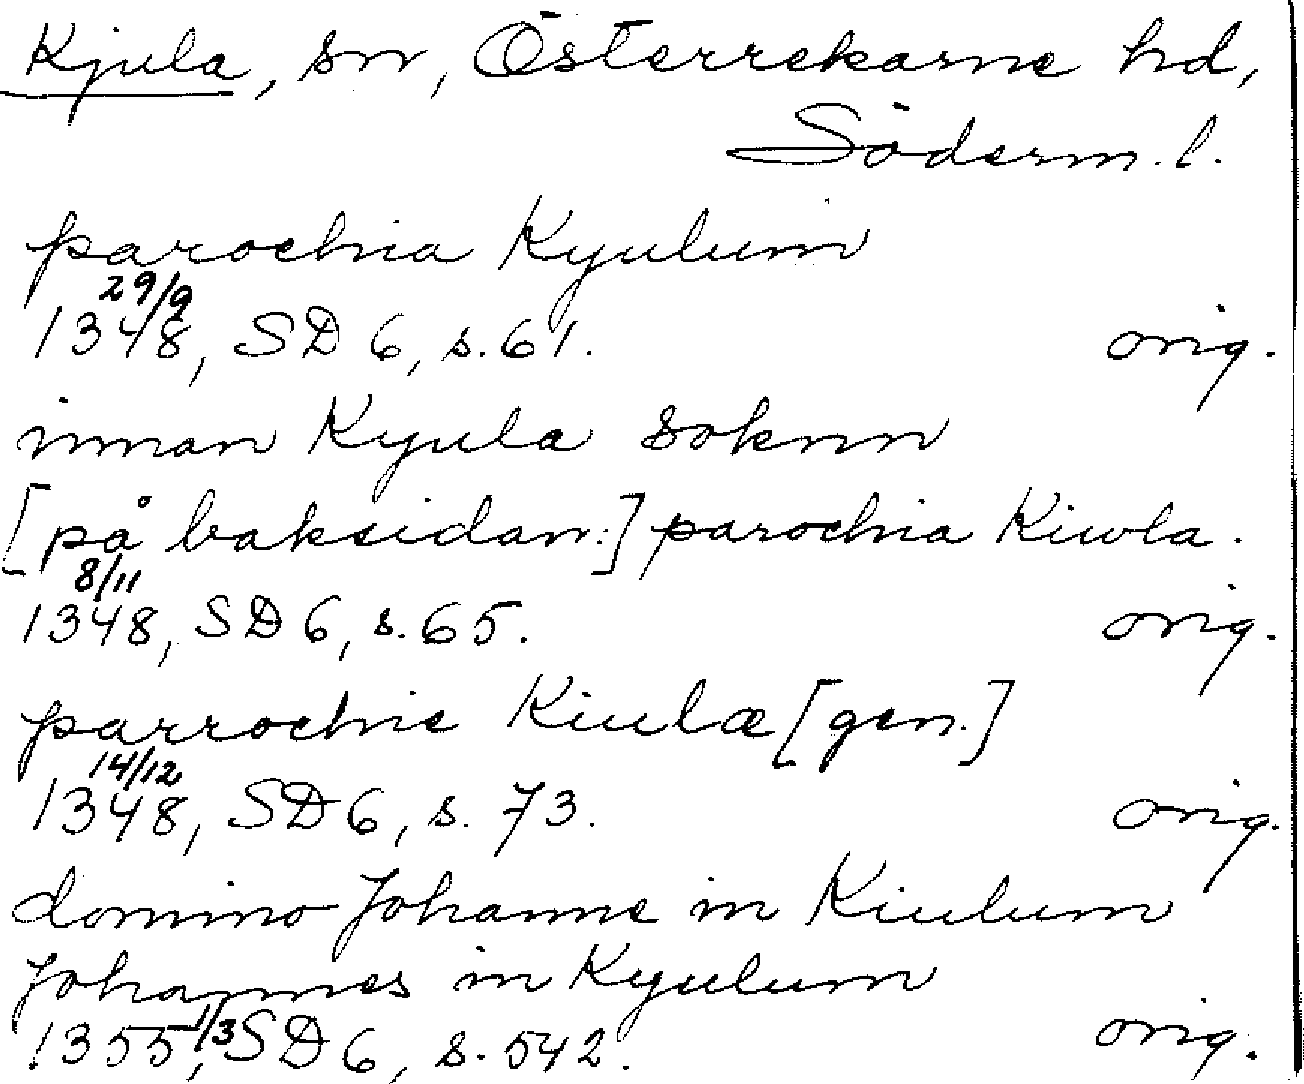 Kjula, sn, Österrekarne hd,
Söderm. l.
parochia Kyulum
29/9
1348, SD 6, s. 61. orig.
innan Kyula soknn
[på baksidan:] parochia Kiwla.
8/11
1348, SD 6, s. 65. orig.
parrochie Kiulæ [gen.]
14/12
1348, SD 6, s. 73. orig.
domino Johanne in Kiulum
Johannes in Kyulum
1355 1/3, SD 6, s. 542. orig.